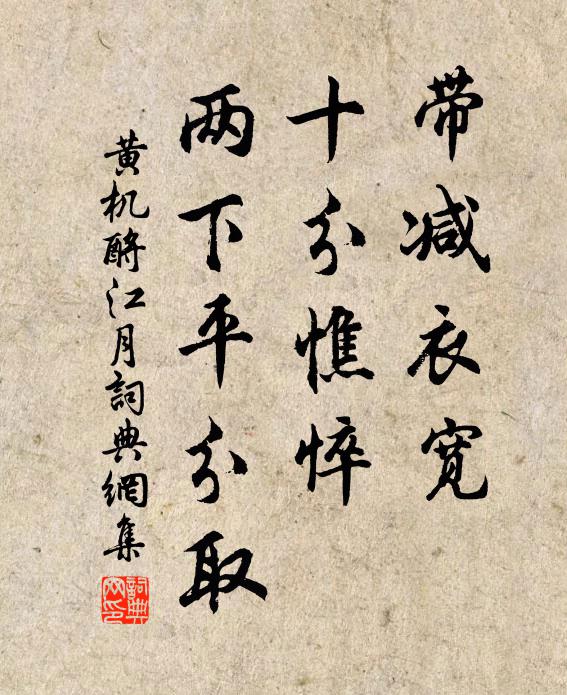 带减衣宽
十分憔悴
两下平分取
黄机酹江月詞典網集
詞典网印